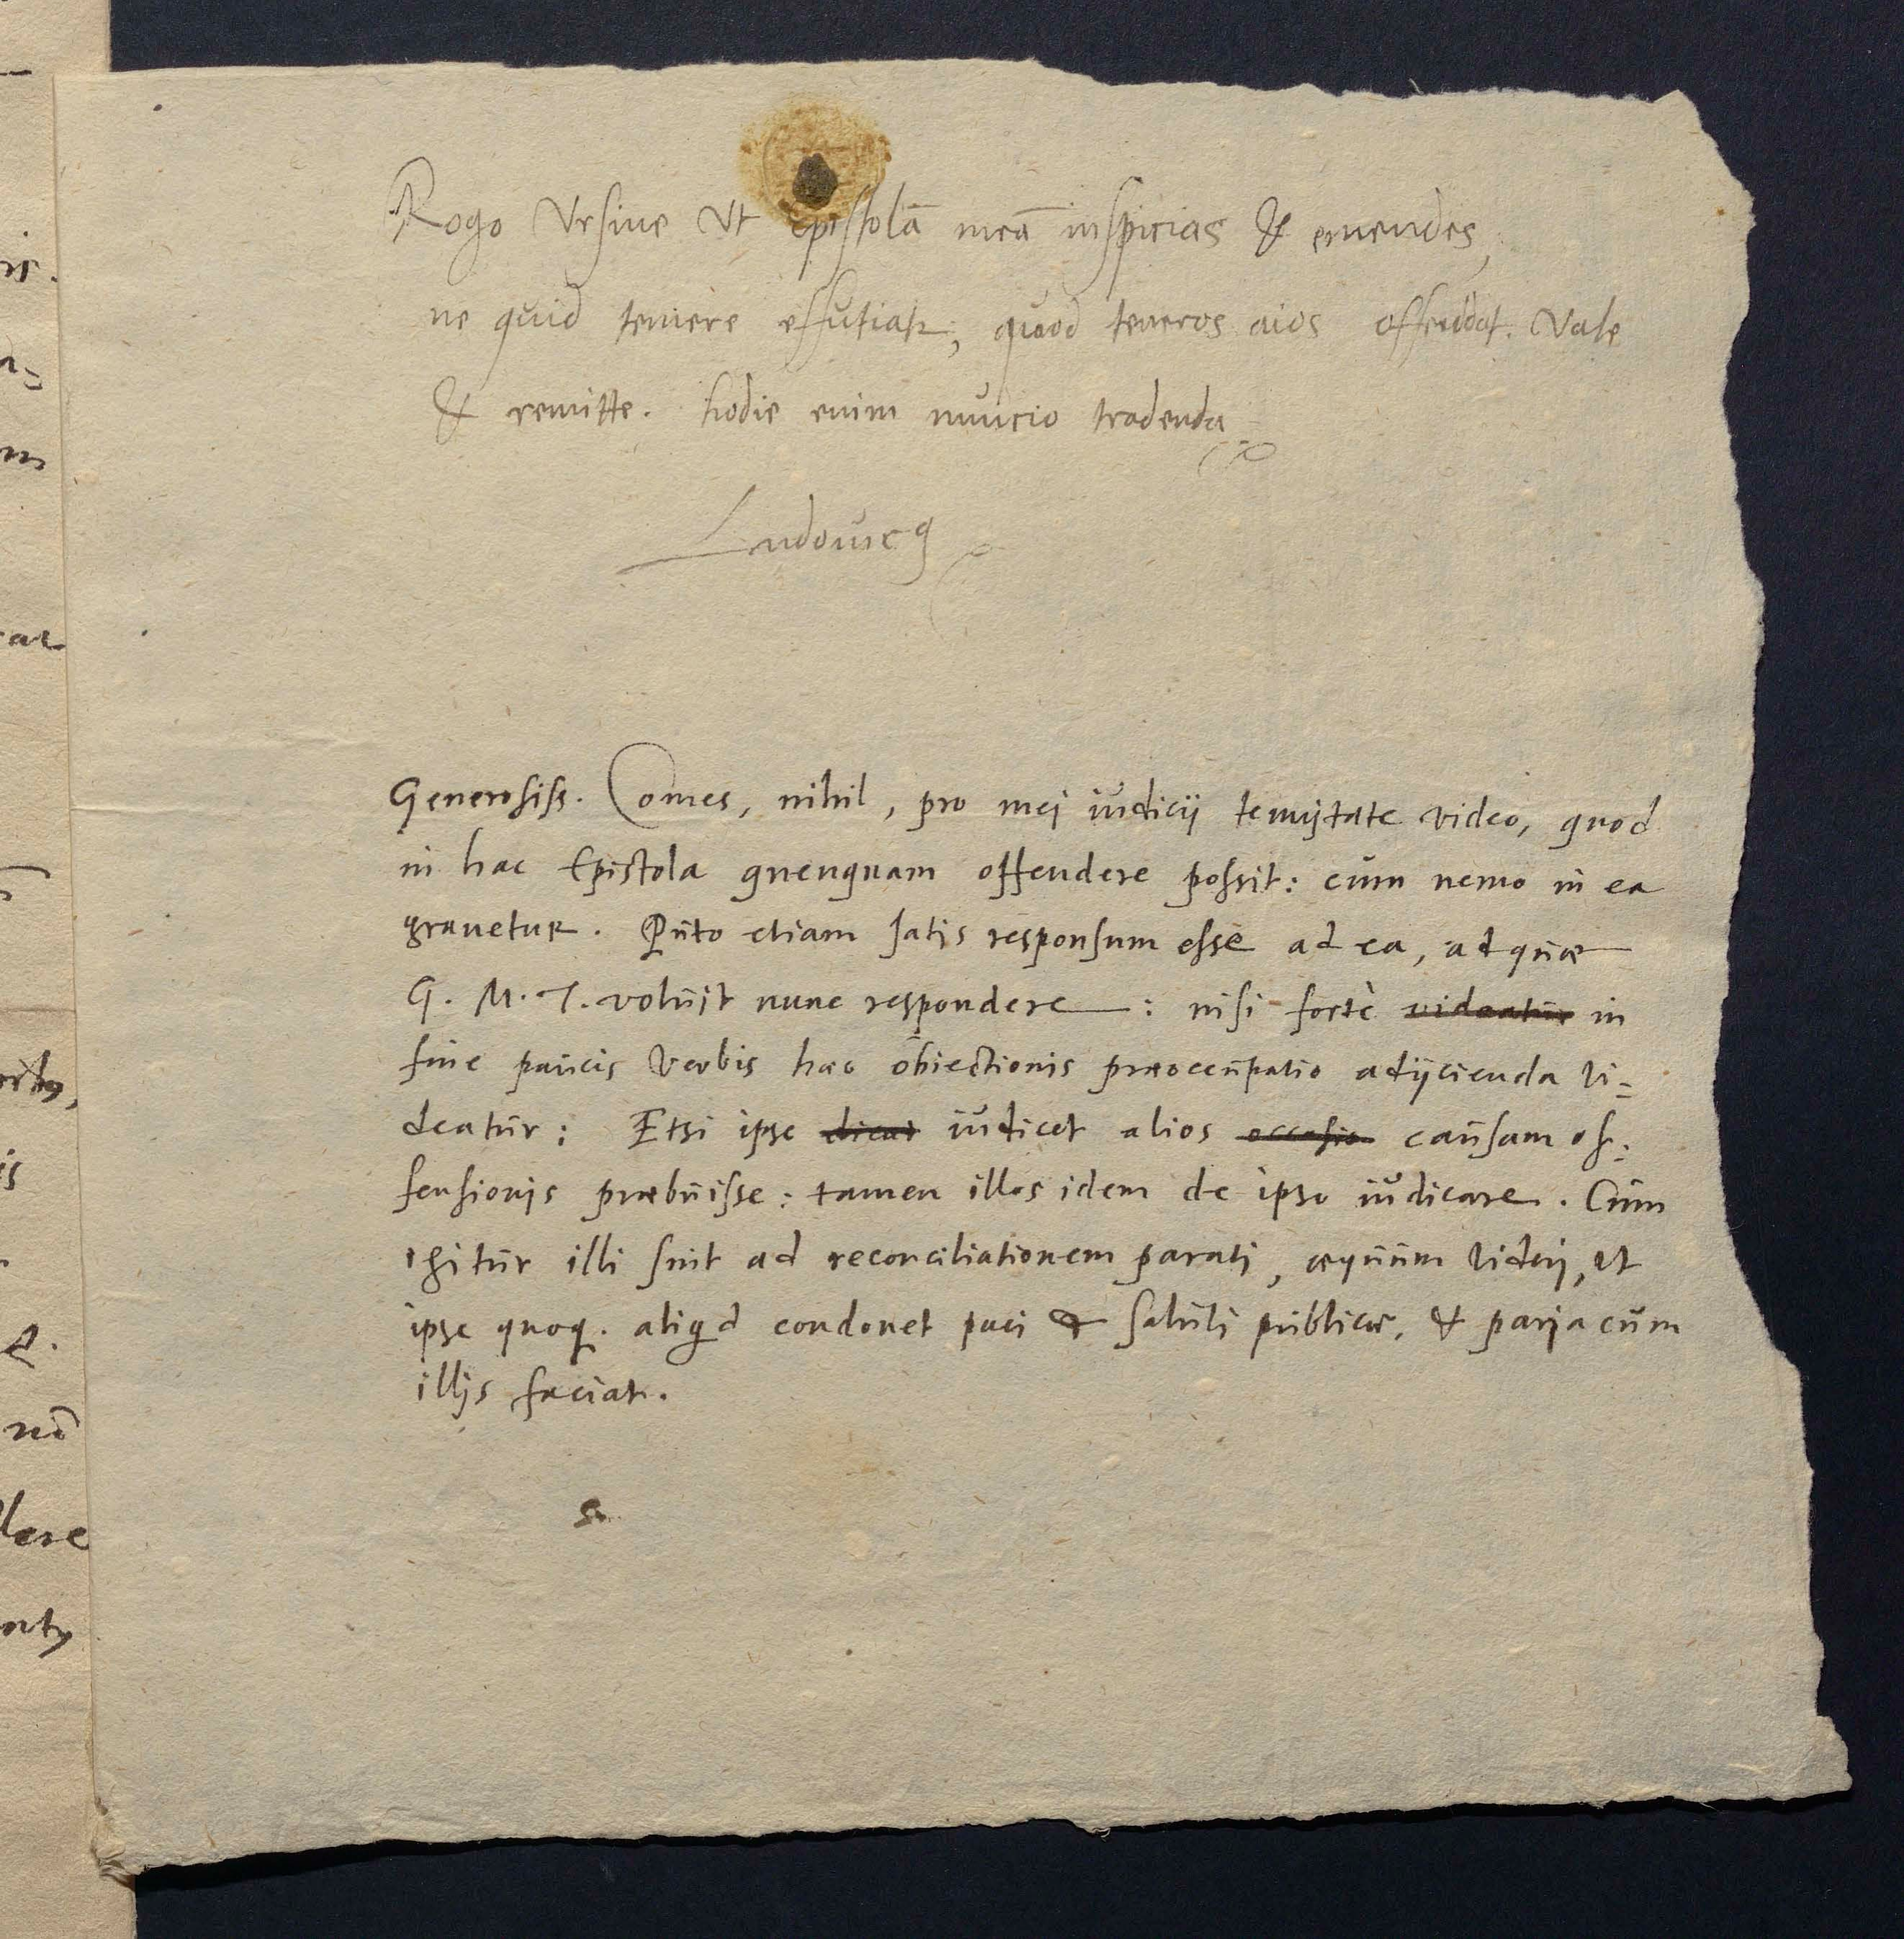 Rogo Vrsine Vt Epistolā meā inspicias & emendes,
ne quid temere effutiatr, quod teneros aīos offendat. Vale
& remitte. hodie enim nuncio tradenda
Ludouicꝯ
Generosiss. Comes, nihil, pro mei iudicij tenuitate video, quod
in hac Epistola quenquam offendere possit: cum nemo in ea
grauetur. Puto etiam satis responsum esse ad ea, ad quæ
G. M. T. voluit nunc respondere: nisi fortè videatur in
fine paucis verbis hæc obiectionis præoccupatio adijcienda vi=
deatur: Etsi ipse dicat iudicet alios occasio causam of=
fensionis præbuisse: tamen illos idem de ipso iudicare. Cum
igitur illi sint ad reconciliationem parati, æquum videri, vt
ipse quoq. aliqd condonet paci & saluti publicæ, & paria cum
illis faciat.
ris.
m
ar
is
nō
lere